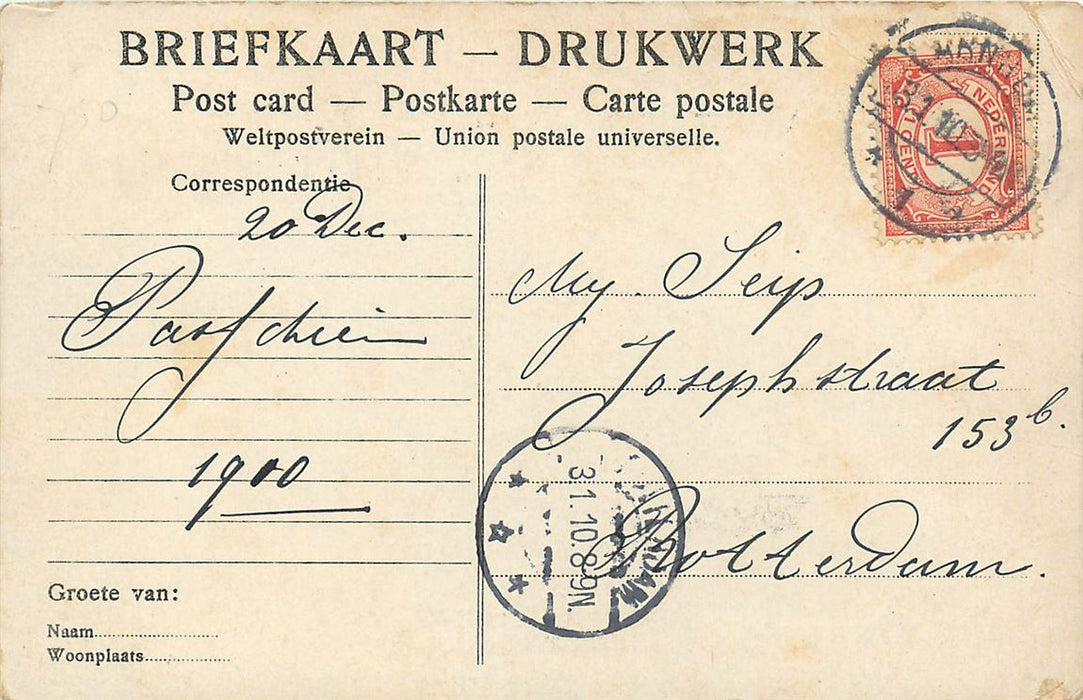 BRIEFKAART — DRUKWERK
Post card — Postkarte — Carte postale
Weltpostverein — Union postale universelle.
Correspondentie
20 Dec.
1900
Groete van:
Naam
Woonplaats
1 CENT NEDERLAND
1
Seip
Josephstraat
153b.
Rotterdam.
3.1.10.8-9N.